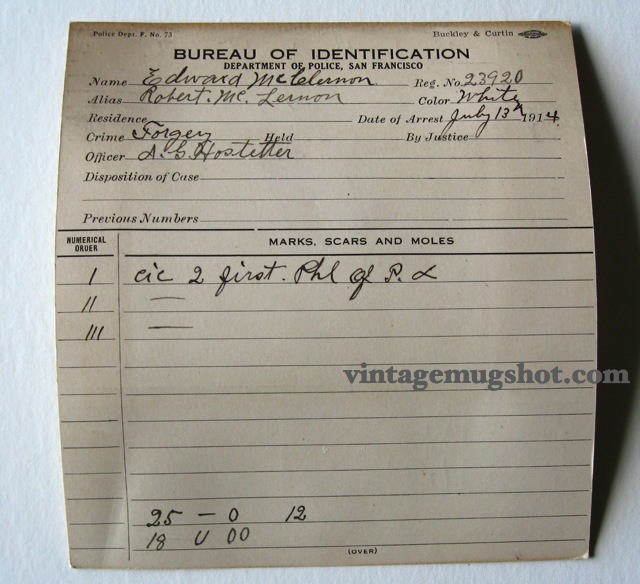 Police Dept. F. No. 73 Buckley & Curtin
BUREAU OF IDENTIFICATION
DEPARTMENT OF POLICE, SAN FRANCISCO
Name Edward McClernon Reg. No. 23920
Alias Robert. Mc. Lernon Color White
Residence Date of Arrest July 13th 1914
Crime Forgery Held By Justice
Officer A. G. Hostetter
Disposition of Case
Previous Numbers
NUMERICAL ORDER MARKS, SCARS AND MOLES
I cic 2 first. Phl of P.
II —
III —
vintagemugshot.com
25 — 0 12
18 U 00
(OVER)